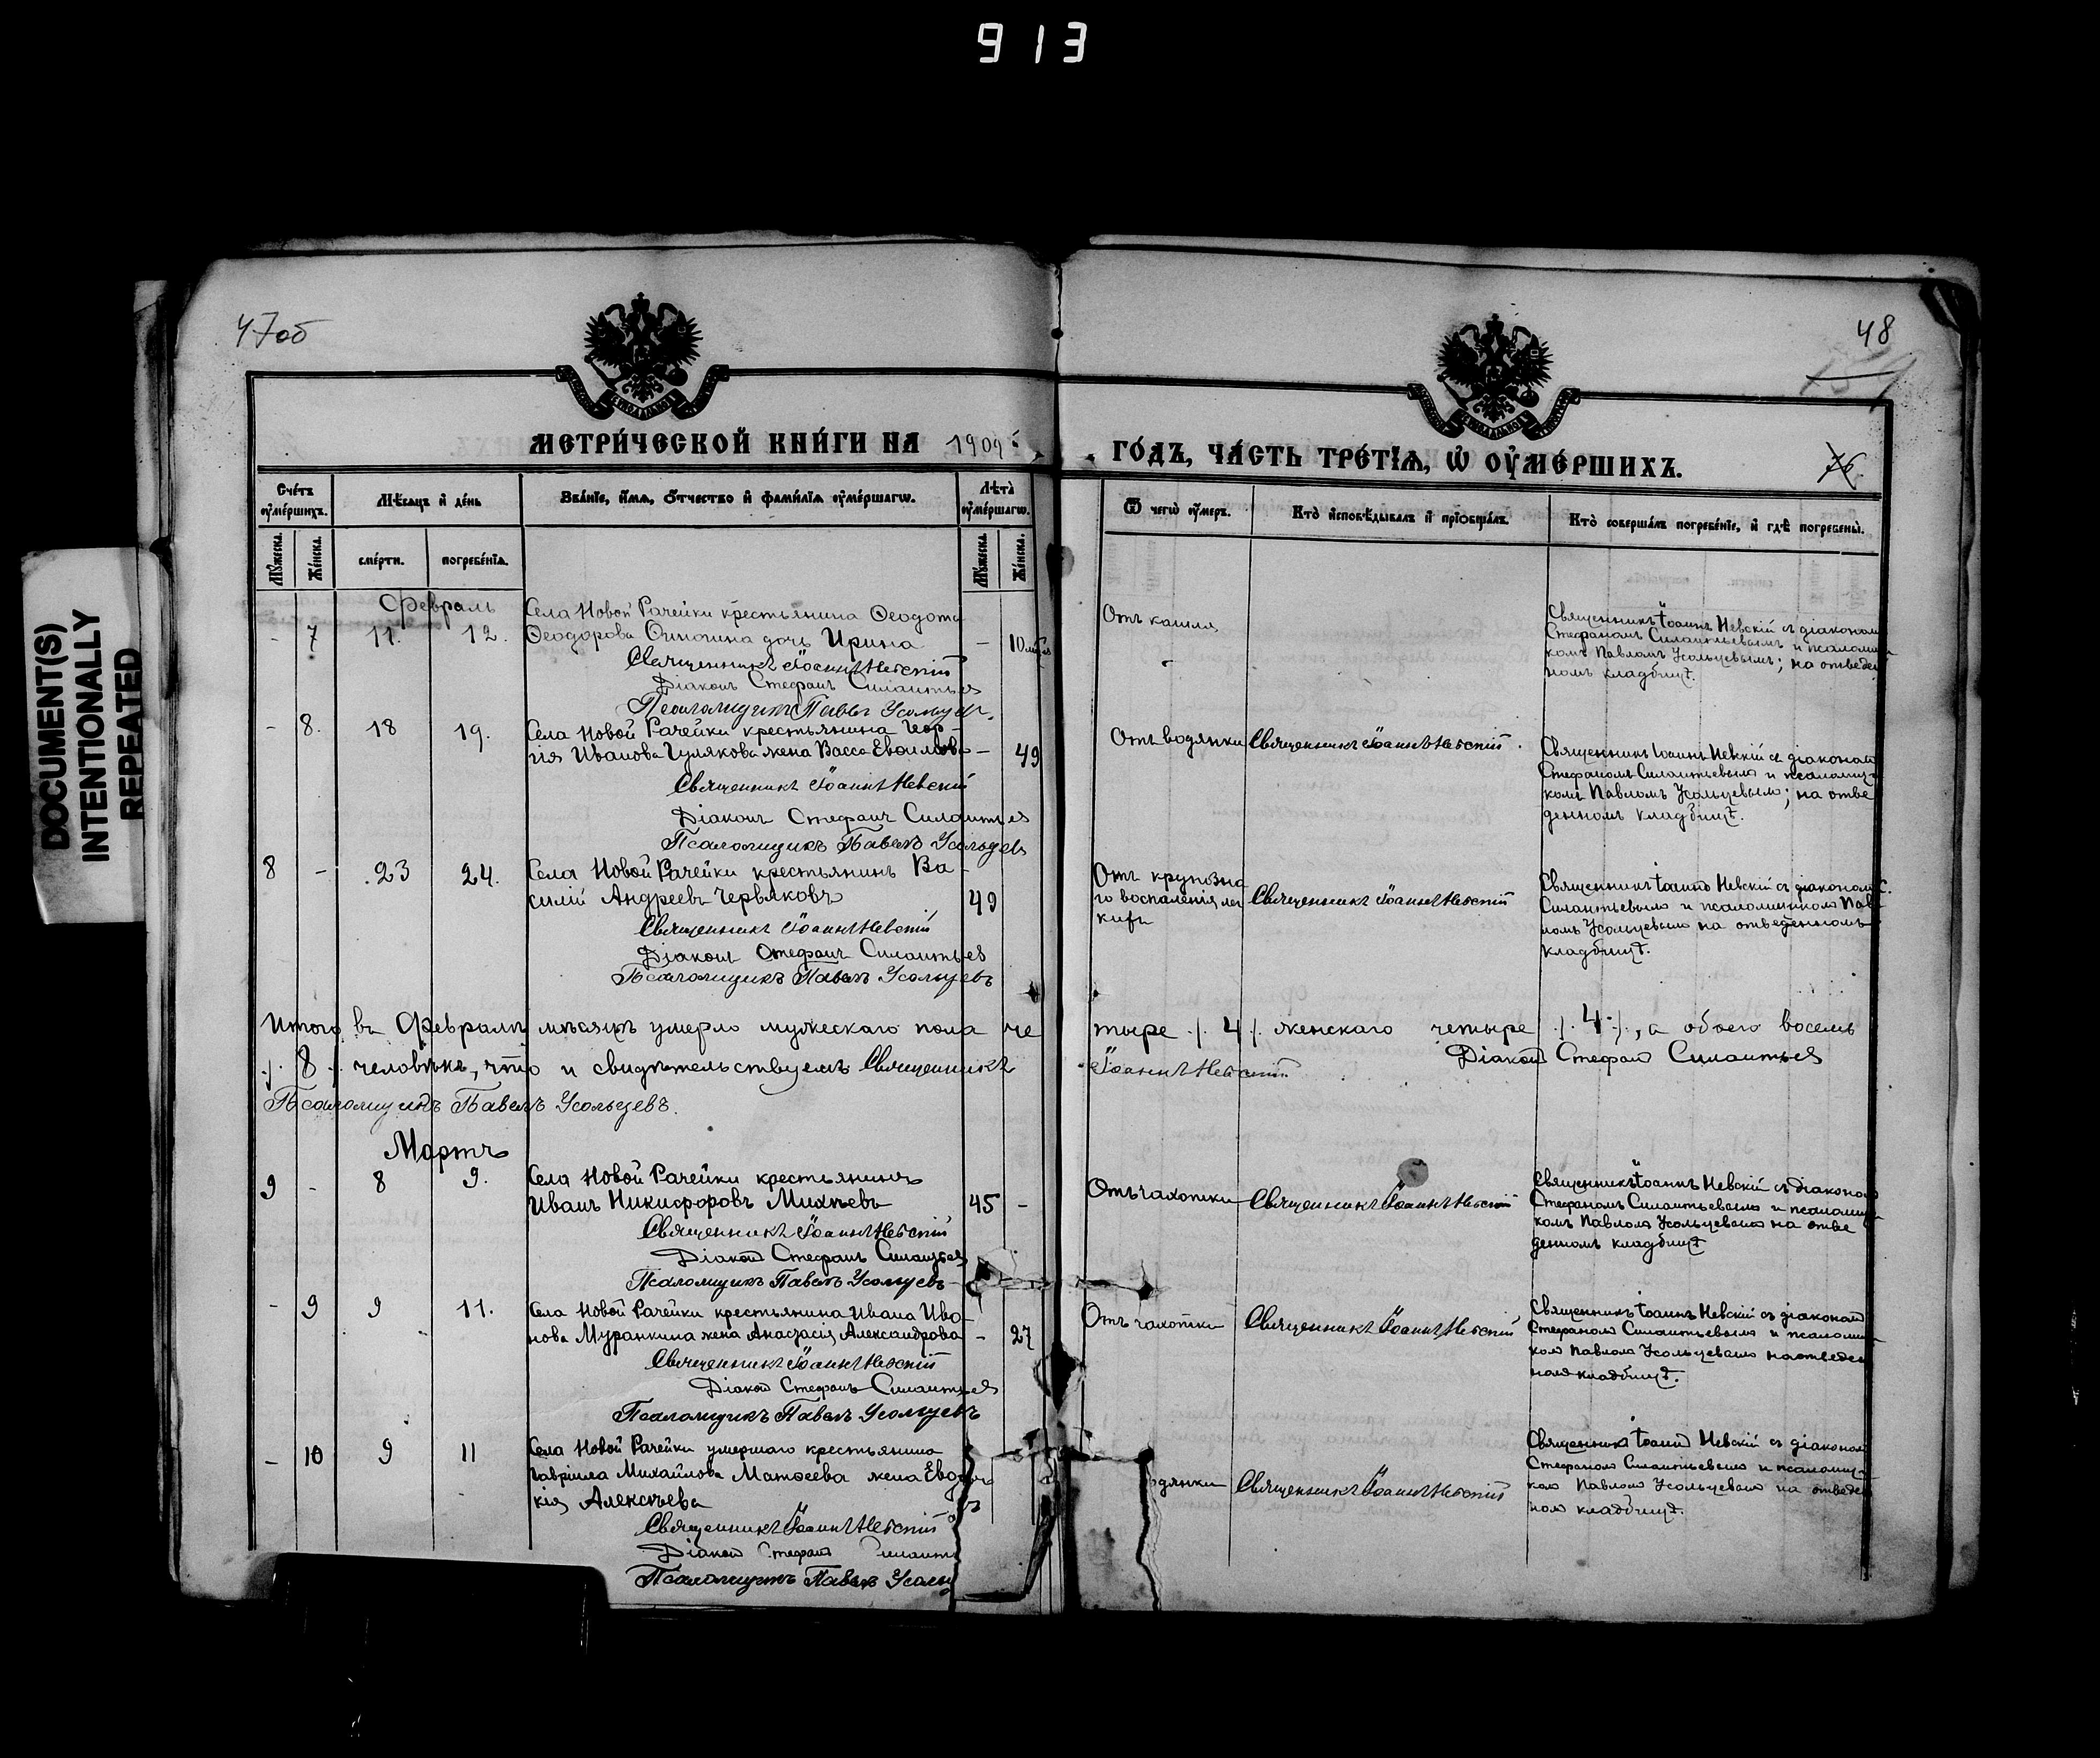 913
DOCUMENT(S)
INTENTIONALLY
REPEATED
47об
48
76.
МЕТРИ́ЧЕСКОЙ КНИ́ГИ НА 1909
ГО́ДЪ, ЧА́СТЬ ТРЕ́ТІѦ, Ѡ ОУ҆МЕ́РШИХЪ.
Сче́тъ оу҆ме́ршихъ.
Мꙋ́жеска.
Же́нска.
Мѣ́сѧцъ и҆ де́нь
сме́рти.
погребе́нїѧ.
Зва́нїе, и҆́мѧ, ѻ҆́тчество и҆ фами́лїѧ оу҆ме́ршагѡ.
Лѣ́та̀ оу҆ме́ршагѡ.
Мꙋ́жеска.
Же́нска.
Ѿ чегѡ̀ оу҆́меръ.
Кто̀ и҆сповѣ́дывалъ и҆ прїѡбща́лъ.
Кто̀ соверша́лъ погребе́нїе, и҆ гдѣ̀ погребены̀.
Февраль
- 7 11. 12.
Села Новой Рачейки крестьянина Ѳеодота
Ѳеодорова дочь Ирина
- 10
Священникъ Іоаннъ Невскій
Діаконъ Стефанъ Силантьев
Псаломщикъ Павелъ Усольцев
Отъ кашля
Священникъ Іоаннъ Невскій съ діаконом
Стефаномъ Силантьевымъ и псаломщи
комъ Павломъ Усольцевымъ; на отведен
номъ кладбищѣ.
- 8. 18 19.
Села Новой Рачейки крестьянина Геор-
гія Иванова Гулякова жена Васса Евоимова
- 49
Священникъ Іоаннъ Невскій
Діаконъ Стефанъ Силантьев
Псаломщикъ Павелъ Усольцевъ
Отъ водянки
Священникъ Іоаннъ Невскій.
Священникъ Іоаннъ Невскій съ діаконом
Стефаномъ Силантьевымъ и псаломщи
комъ Павломъ Усольцевымъ; на отве
денномъ кладбищѣ.
8 - 23 24.
Села Новой Рачейки крестьянинъ Ва-
силій Андреевъ Червяковъ
49
Священникъ Іоаннъ Невскій
Діаконъ Стефанъ Силантьев
Псаломщикъ Павелъ Усольцевъ
Отъ крупозна
го воспаленія лег
кихъ
Священникъ Іоаннъ Невскій
Священникъ Іоаннъ Невскій съ діакономъ С.
Силантьевымъ и псаломщикомъ Пав
ломъ Усольцевымъ на отведенномъ
кладбищѣ.
Итого въ Февралѣ мѣсяцѣ умерло мужескаго пола че
тыре ./. 4 ./. женскаго четыре ./. 4 ./., а обоего восемь
./. 8 ./. человѣкъ, что и свидѣтельствуемъ Священникъ
Іоаннъ Невскій
Діаконъ Стефанъ Силантьев
Псаломщикъ Павелъ Усольцевъ.
Мартъ
9 - 8 9.
Села Новой Рачейки крестьянинъ
Иванъ Никифоровъ Михѣевъ
45 -
Священникъ Іоаннъ Невскій
Діаконъ Стефанъ Силантьев
Псаломщикъ Павелъ Усольцевъ
Отъ чахотки
Священникъ Іоаннъ Невскій
Священникъ Іоаннъ Невскій съ діаконом
Стефаномъ Силантьевымъ и псаломщи
комъ Павломъ Усольцевымъ на отве
денномъ кладбищѣ
- 9 9 11.
Села Новой Рачейки крестьянина Ивана Ива-
нова Муранкина жена Анастасія Александрова
- 27
Священникъ Іоаннъ Невскій
Діаконъ Стефанъ Силантьев
Псаломщикъ Павелъ Усольцевъ
Отъ чахотки
Священникъ Іоаннъ Невскій
Священникъ Іоаннъ Невскій съ діаконом
Стефаномъ Силантьевымъ и псаломщи
комъ Павломъ Усольцевымъ на отведен
номъ кладбищѣ.
- 10 9 11
Села Новой Рачейки умершаго крестьянина
Гавріила Михайлова Матѳеева жена Евдо
кія Алексѣева
Священникъ Іоаннъ Невскій
Діаконъ Стефанъ Силанть
Псаломщикъ Павелъ Усольц
дянки
Священникъ Іоаннъ Невскій
Священникъ Іоаннъ Невскій съ діаконом
Стефаномъ Силантьевымъ и псаломщи
комъ Павломъ Усольцевымъ на отведен
номъ кладбищѣ.